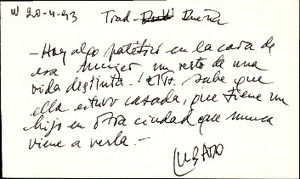 20-4-93 Trad- Dueña
- Hay algo patético en la cara de
esa mujer un resto de una
vida distinta. sabe que
ella estuvo casada, que tiene un
hijo en otra ciudad que nunca
viene a verla.-
LUBARO